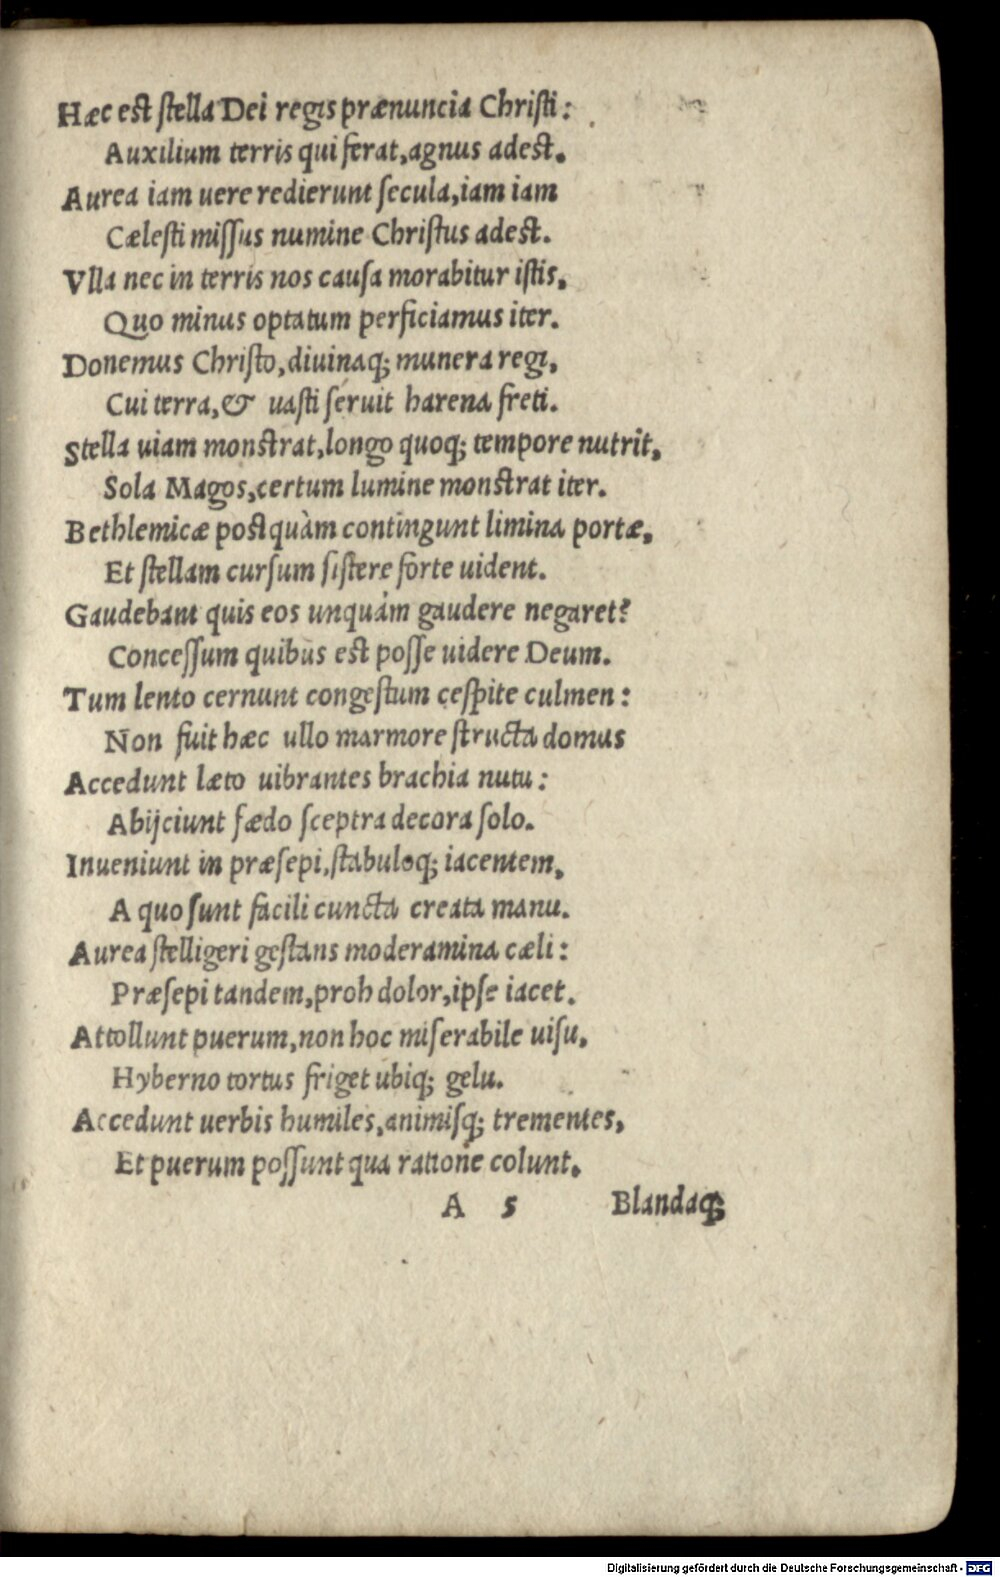 Hæc est ſtella Dei regis prænuncia Chriſti:
Auxilium terris qui ferat, agnus adest.
Aurea iam uere redierunt ſecula, iam iam
Cæleſti miſſus numine Chriſtus adest.
Vlla nec in terris nos cauſa morabitur iſtis,
Quo minus optatum perficiamus iter.
Donemus Chriſto, diuinaq; munera regi,
Cui terra, & uaſti ſeruit harena freti.
Stella uiam monstrat, longo quoq; tempore nutrit,
Sola Magos, certum lumine monstrat iter.
Bethlemicæ postquàm contingunt limina portæ,
Et ſtellam curſum ſiſtere forte uident.
Gaudebant quis eos unquàm gaudere negaret?
Conceſſum quibus est poſſe uidere Deum.
Tum lento cernunt congeſtum ceſpite culmen:
Non fuit hæc ullo marmore ſtructa domus
Accedunt læto uibrantes brachia nutu:
Abijciunt fædo ſceptra decora ſolo.
Inueniunt in præſepi, ſtabuloq; iacentem,
A quo ſunt facili cuncta creata manu.
Aurea ſtelligeri geſtans moderamina cæli:
Præſepi tandem, proh dolor, ipſe iacet.
Attollunt puerum, non hoc miſerabile uiſu,
Hyberno tortus friget ubiq; gelu.
Accedunt uerbis humiles, animiſq; trementes,
Et puerum poſſunt qua ratione colunt.
A 5 Blandaq;
Digitalisierung gefördert durch die Deutsche Forschungsgemeinschaft - DFG